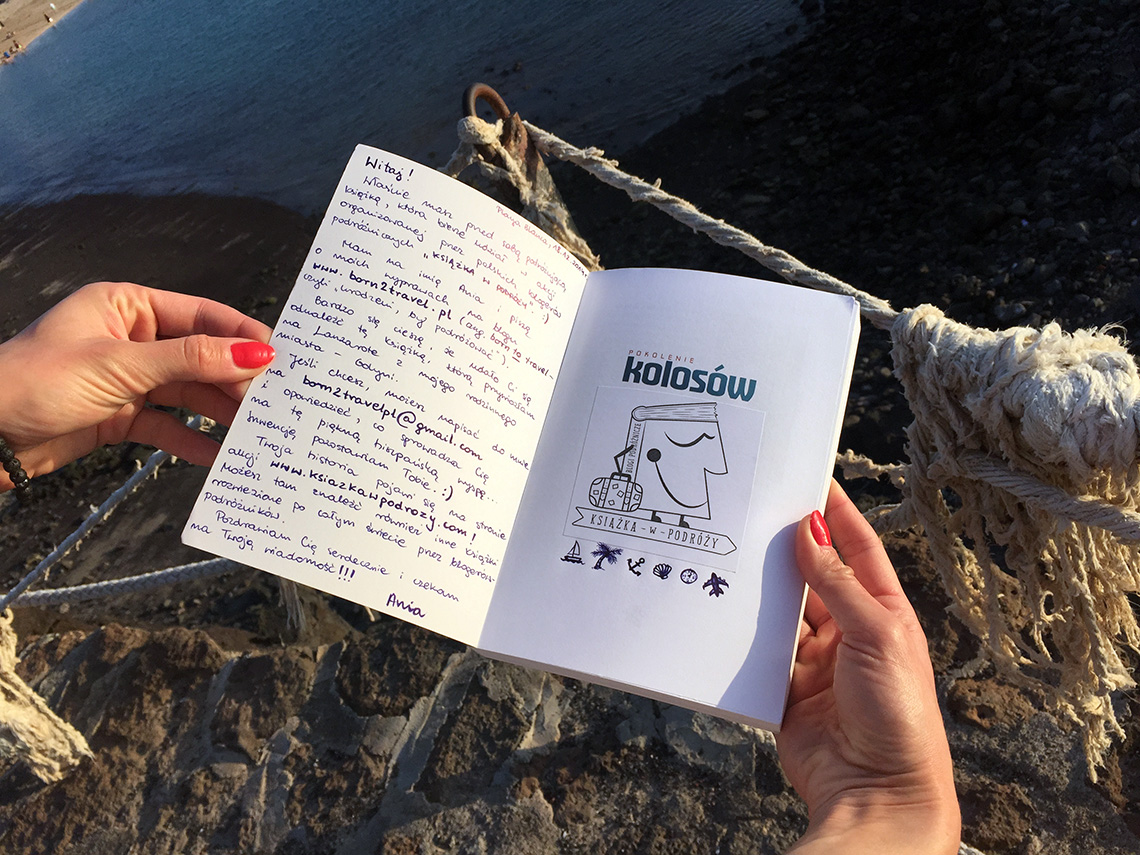 Witaj!
Playa Blanca, 18.12.
Właśnie masz przed sobą podróżującą
książkę, która bierze udział w akcji
organizowanej przez polskich blogerów
podróżniczych "KSIĄŻKA W PODRÓŻY" :)
Mam na imię Ania i piszę
o moich wyprawach na blogu
www.born2travel.pl (ang. born to travel -
czyli "urodzeni, by podróżować").
Bardzo się cieszę, że udało Ci się
odnaleźć tę książkę, którą przywiozłam
na Lanzarote z mojego rodzinnego
miasta - Gdyni.
Jeśli chcesz, możesz napisać do mnie
na born2travelpl@gmail.com
i opowiedzieć, co sprowadza Cię
na tę piękną hiszpańską wyspę...
Inwencję pozostawiam Tobie :)
Twoja historia pojawi się na stronie
akcji www.ksiazkawpodrozy.com!
Możesz tam znaleźć również inne książki
rozwiezione po całym świecie przez blogerów-
podróżników.
Pozdrawiam Cię serdecznie i czekam
na Twoją wiadomość!!!
Ania
POKOLENIE
kolosów
BLOGI PODRÓŻNICZE
KSIĄŻKA-W-PODRÓŻY